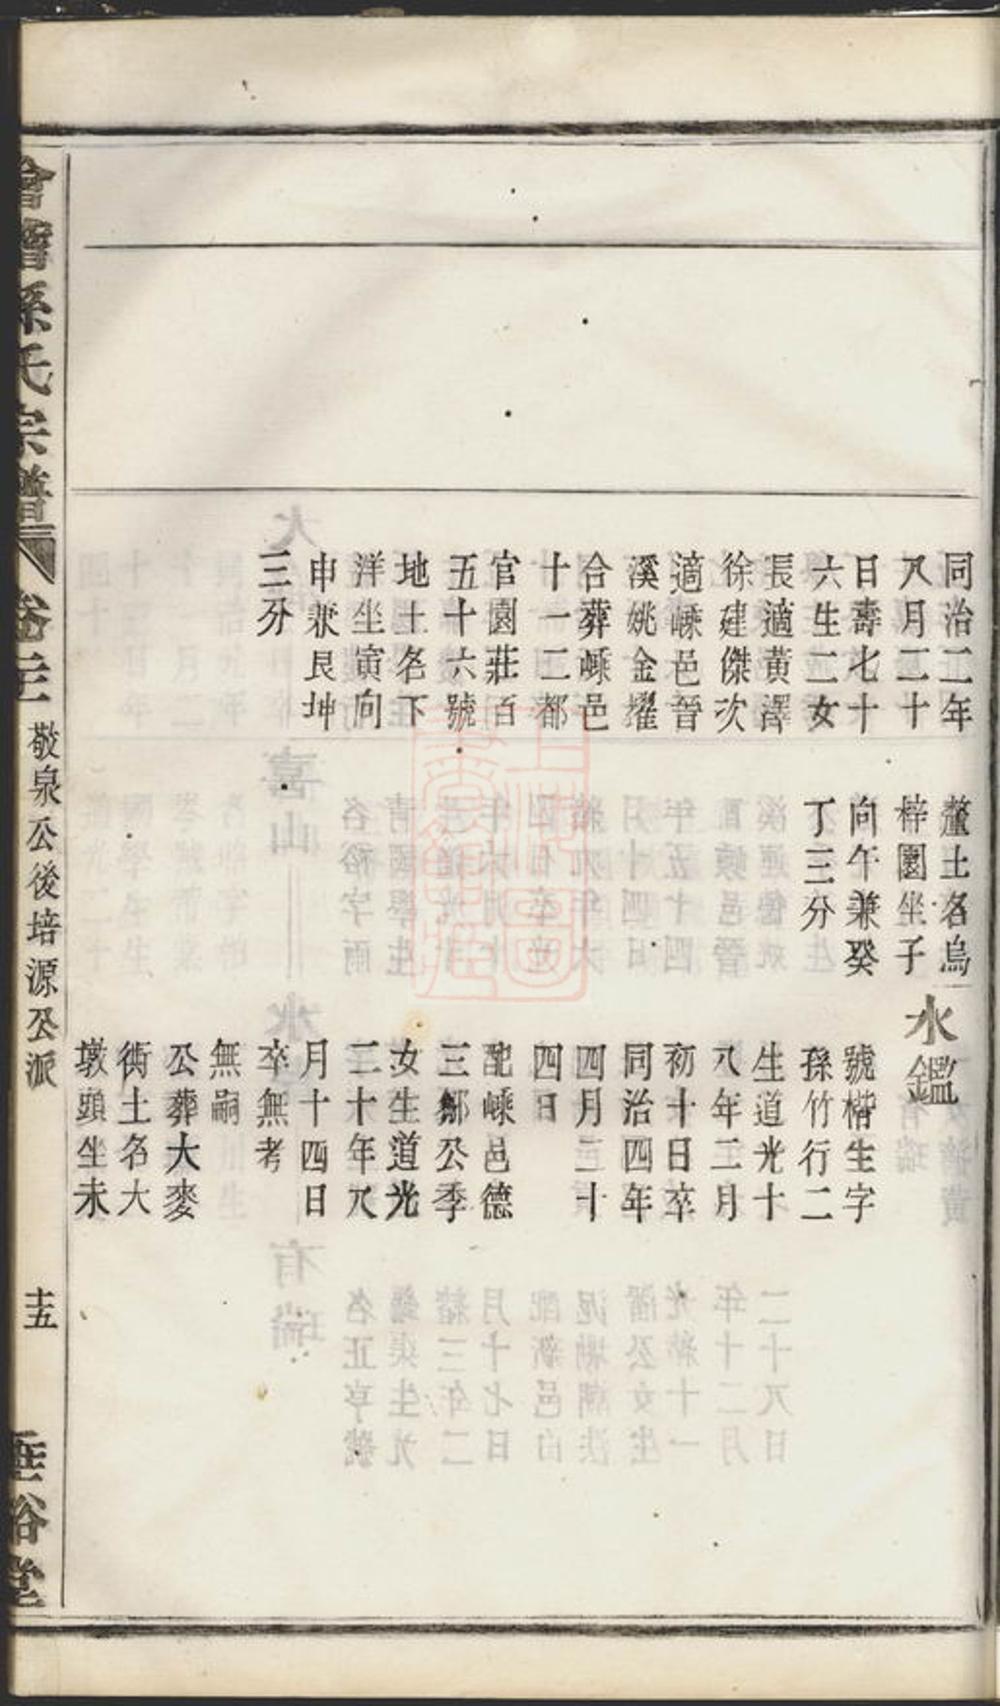 同治二年
八月二十
日壽七十
六生二女
長適黃澤
徐建傑次
適嵊邑晉
溪姚金燿
合葬嵊邑
十一二都
官園莊百
五十六號
地土名下
洋坐寅向
申兼艮坤
三分
鼇土名烏
梓園坐子
向午兼癸
丁三分
水鑑
號楷生字
孫竹行二
生道光十
八年二月
初十日卒
同治四年
四月二十
四日
配嵊邑德
三鄒公季
女生道光
二十年八
月十四日
卒無考
無嗣
公葬大麥
塢土名大
墩頭坐未
會稽孫氏宗譜 卷三 敬泉公後培源公派 十五 垂裕堂